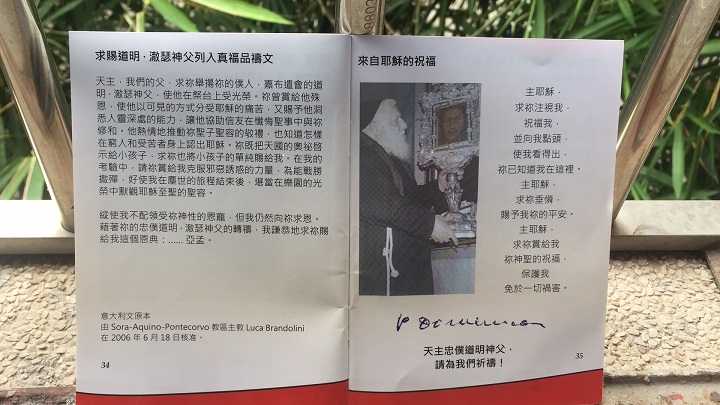 求賜道明．澈瑟神父列入真福品禱文
天主，我們的父，求祢舉揚祢的僕人，嘉布遣會的道
明．澈瑟神父，使他在祭台上受光榮。祢曾賞給他殊
恩，使他以可見的方式分受耶穌的痛苦，又賜予他洞
悉人靈深處的能力，讓他協助信友在懺悔聖事中與祢
修和。他熱情地推動祢聖子聖容的敬禮，也知道怎樣
在窮人和受苦者身上認出耶穌。祢既把天國的奧祕啓
示給小孩子，求祢也將小孩子的單純賜給我。在我的
考驗中，請祢賞給我克服邪惡誘惑的力量，為能戰勝
撒殫，好使我在塵世的旅程結束後，堪當在樂園的光
榮中默觀耶穌至聖的聖容。
縱使我不配領受祢神性的恩寵，但我仍然向祢求恩。
藉著祢的忠僕道明．澈瑟神父的轉禱，我謙恭地求祢賜
給我這個恩典：...... 亞孟。
意大利文原本
由 Sora-Aquino-Pontecorvo 教區主教 Luca Brandolini
在 2006 年 6 月 18 日核准。
34
來自耶穌的祝福
主耶穌，
求祢注視我，
祝福我，
並向我點頭，
使我看得出，
祢已知道我在這裡。
主耶穌，
求祢垂憐，
賜予我祢的平安。
主耶穌，
求祢賞給我
祢神聖的祝福，
保護我
免於一切禍害。
天主忠僕道明神父，
請為我們祈禱！
35